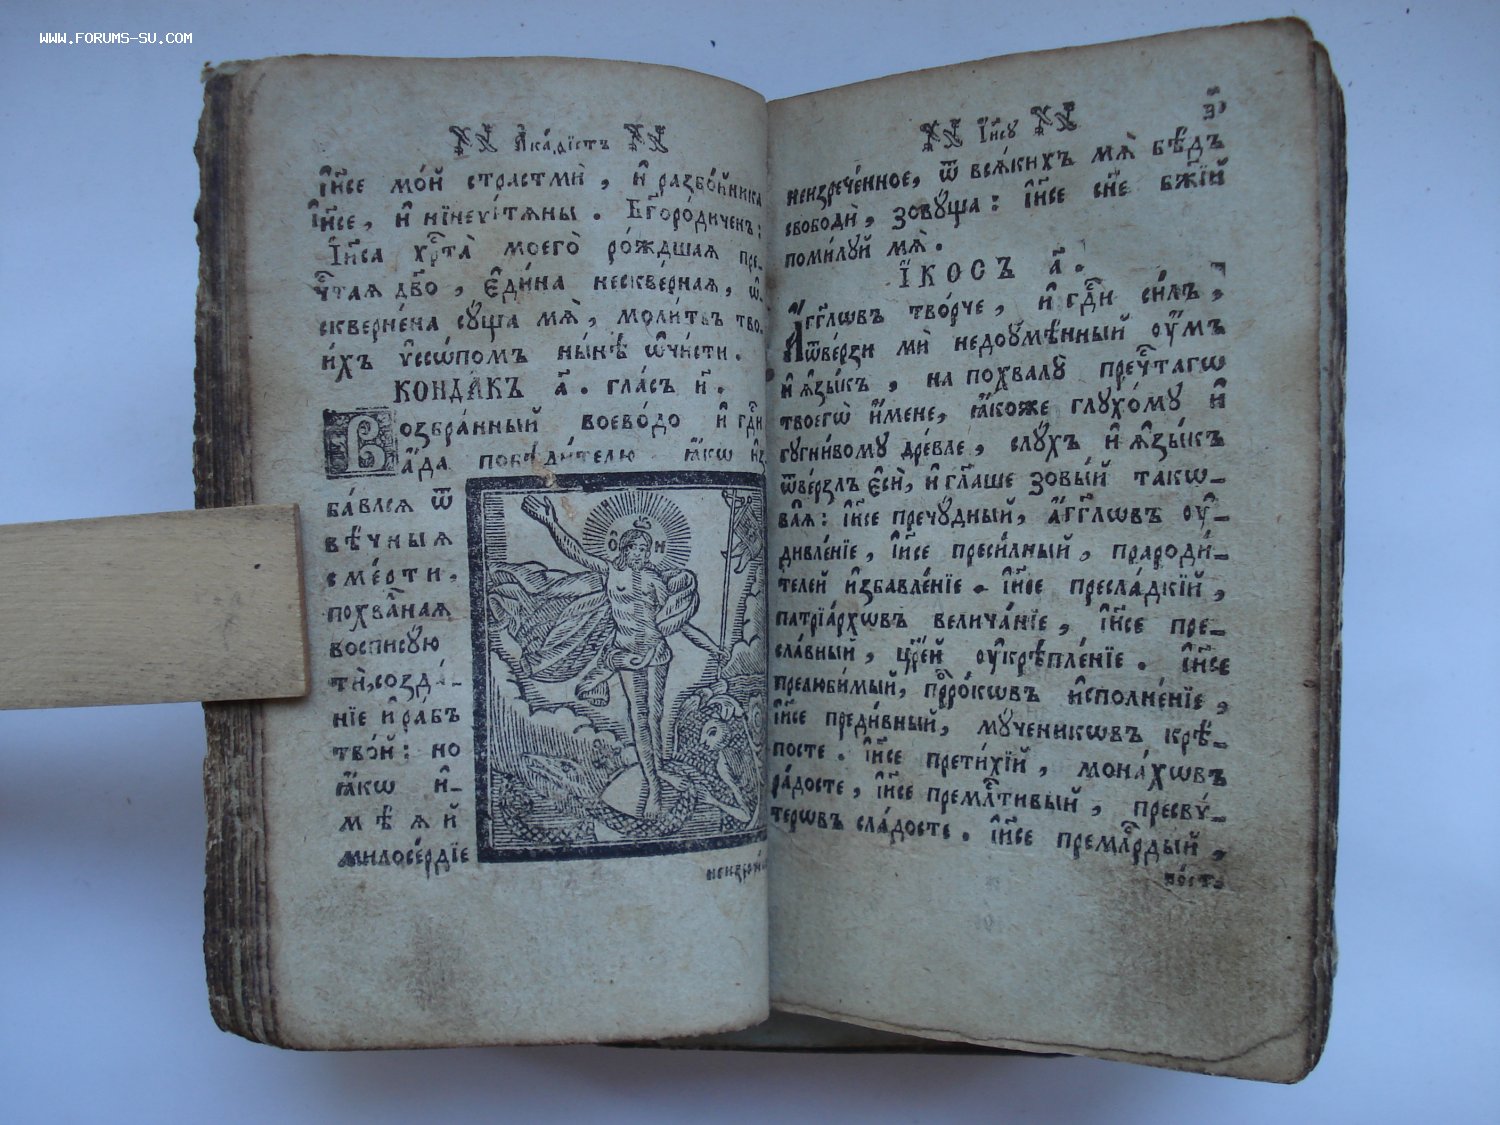 WWW.FORUMS-SU.COM
А҆ка́ѳїстъ
І҆и҃се мо́й страстмѝ, и҆ разбо́йника
І҆и҃се, и҆ нїнеѵі́тѧны. Бг҃оро́диченъ:
І҆и҃са хрⷭ҇та̀ моегѡ̀ ро́ждшаѧ пре-
чⷭ҇таѧ дв҃о, є҆ди́на нескве́рнаѧ, ѡ҆-
скверне́на сꙋ́ща мѧ̀, моли́твъ тво-
и́хъ ѵ҆ссѡ́помъ ны́нѣ ѡ҆чи́сти.
КОНДА́КЪ а҃. гла́съ и҃.
Возбра́нный воево́до и҆ гдⷭ҇и
а҆́да побѣди́телю ꙗ҆́кѡ и҆з
ба́влсѧ ѿ
вѣ́чныѧ
сме́рти,
похва́лнаѧ
восписꙋ́ю
тѝ, созда́-
нїе и҆ ра́бъ
тво́й: но
ꙗ҆́кѡ и҆-
мѣ́ѧй
милосе́рдїе
неизрече́н
І҆и҃сꙋ
з҃
неизрече́нное, ѿ всѧ́кихъ мѧ̀ бѣ́дъ
свободѝ, зовꙋ́ща: І҆и҃се сн҃е бж҃їй
поми́лꙋй мѧ̀.
І҆́КОСЪ а҃.
А҆́гг҃лѡвъ тво́рче, и҆ гдⷭ҇и си́лъ,
ѿве́рзи мѝ недоꙋмѣ́нный ѹ҆́мъ
и҆ ѧ҆зы́къ, на похвалꙋ̀ пречⷭ҇тагѡ
твоегѡ̀ и҆́мене, ꙗ҆́коже глꙋхо́мꙋ и҆
гꙋгни́вомꙋ дре́вле, слꙋ́хъ и҆ ѧ҆зы́къ
ѿве́рзлъ є҆сѝ, и҆ гл҃аше зовы́й такѡ-
ва́ѧ: І҆и҃се пречꙋ́дный, а҆́гг҃лѡвъ ѹ҆-
дивле́нїе, І҆и҃се преси́лный, прароди́-
телей и҆збавле́нїе. І҆и҃се пресла́дкїй,
патрїа́рхѡвъ велича́нїе, І҆и҃се пре-
сла́вный, цр҃е́й ѹ҆крѣпле́нїе. І҆и҃се
прелюби́мый, прⷪ҇ро́кѡвъ и҆сполне́нїе,
І҆и҃се преди́вный, мꙋ́ченикѡвъ крѣ́-
посте. І҆и҃се прети́хїй, мона́хѡвъ
ра́досте, І҆и҃се премлⷭ҇тивый, пресвѵ́-
терѡвъ сла́досте. І҆и҃се премлⷭ҇рдый,
по́стъ